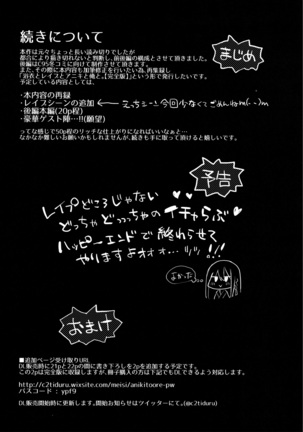 続きについて
まじめ
本作は元々ちょっと長い読み切りでしたが
都合により描き切れないと判断し、前後編の構成とさせて頂きました。
後編は C95冬コミに向けて制作させて頂きます。
また、その際に本内容も加筆修正を行いたい為、再集録し
「浴衣とレイプとアニキと俺と。【完全版】」という形で発行したいです。
予定している内容としては、
・本内容の再録
・レイプシーンの追加 ← えっちシーン今回少なくてごめんねm(-_-)m
・後編本編(20p程)
・豪華ゲスト陣…!!(願望)
って感じで50p程のリッチな仕上がりになればいいなぁと…
なかなか厳しいお願いかもしれませんが、続きも手に取って頂けると嬉しいです。
予告
レイプどころじゃない
どっちゃどっっちゃのイチャらぶ
ハッピーエンドで終わらせて
やりますよオォォ…ッ!!
よかった…
おまけ
■追加ページ受け取りURL
DL販売時に21pと22pの間に書き下ろしを2pを追加する予定です。
この2pは完全版に収録しますが、冊子購入の方は下記でもDL出来るよう対応します。
http://c2tiduru.wixsite.com/meisi/anikitoore-pw
パスコード：ypf9
DL販売開始時に更新します。開始お知らせはツイッターにて。(@c2tiduru)